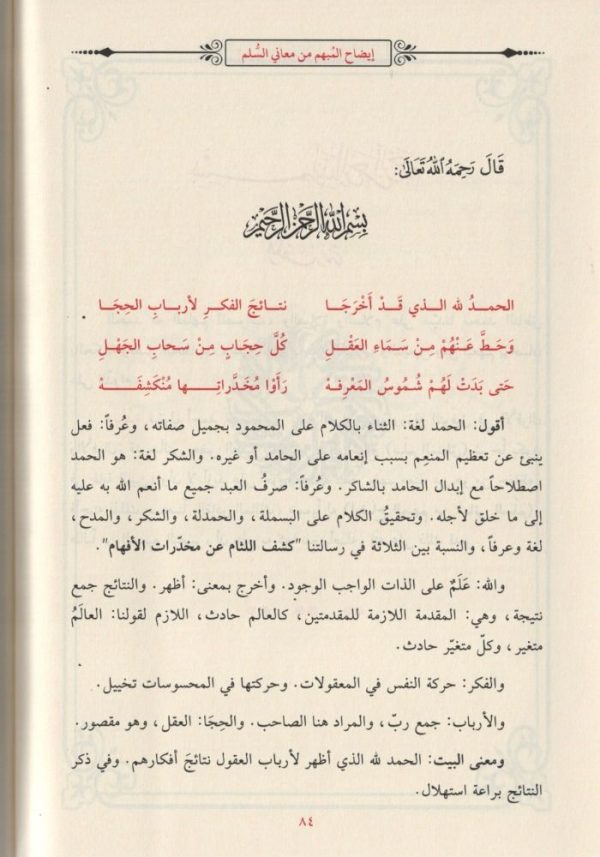 إيضاح المُبهم من معاني السُّلم
قَالَ رَحِمَهُ ٱللَّهُ تَعَالَىٰ:
بِسْمِ اللَّهِ الرَّحْمَنِ الرَّحِيمِ
الحمـدُ لله الـذي قَـدْ أَخْرَجَـا نتـائجَ الفكـرِ لأربـابِ الحِجَـا
وَحَطَّ عَنْهُمْ مِنْ سَمَاءِ العَقْـلِ كُلَّ حِجَابٍ مِنْ سَحابِ الجَهْلِ
حَتى بَدَتْ لَهُمْ شُمُوسُ المَعْرِفه رَأَوْا مُخَدَّراتِـهـا مُنْكَشِفَـهْ
أقول: الحمد لغة: الثناء بالكلام على المحمود بجميل صفاته، وعُرفاً: فعل
ينبئ عن تعظيم المنعِم بسبب إنعامه على الحامد أو غيره. والشكر لغة: هو الحمد
اصطلاحاً مع إبدال الحامد بالشاكر. وعُرفاً: صرفُ العبد جميع ما أنعم الله به عليه
إلى ما خلق لأجله. وتحقيقُ الكلام على البسملة، والحمدلة، والشكر، والمدح،
لغة وعرفاً، والنسبة بين الثلاثة في رسالتنا "كشف اللثام عن مخدّرات الأفهام".
والله: عَلَمٌ على الذات الواجب الوجود. وأخرج بمعنى: أظهر. والنتائج جمع
نتيجة، وهي: المقدمة اللازمة للمقدمتين، كالعالم حادث، اللازم لقولنا: العالَمُ
متغير، وكلّ متغيّر حادث.
والفكر: حركة النفس في المعقولات. وحركتها في المحسوسات تخييل.
والأرباب: جمع ربّ، والمراد هنا الصاحب. والحِجَا: العقل، وهو مقصور.
ومعنى البيت: الحمد لله الذي أظهر لأرباب العقول نتائجَ أفكارهم. وفي ذكر
النتائج براعة استهلال.
٨٤